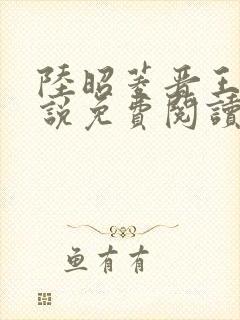 陸昭菱晋王
說免費閱讀
鱼有有